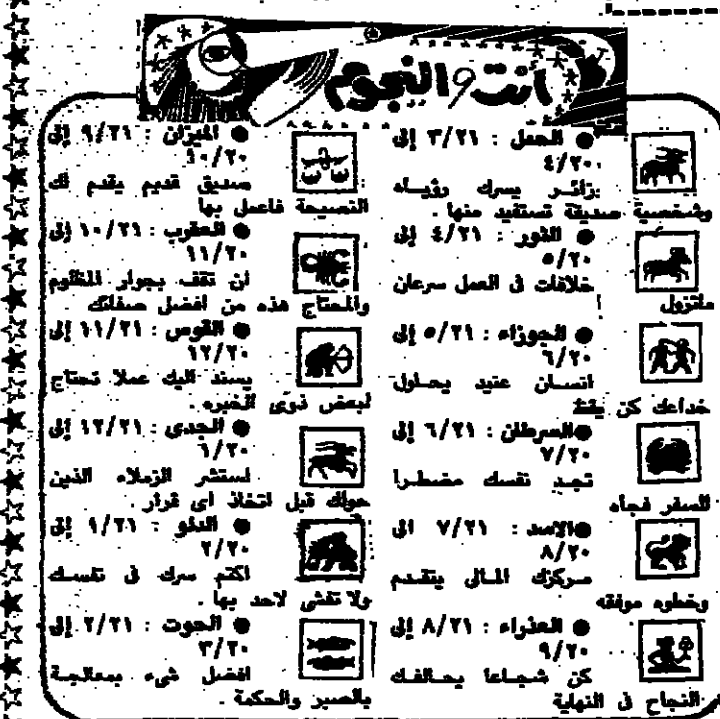 أنت والنجوم
● الحمل : ٣/٢١ إلى
٤/٢٠
زائر يسرك رؤياه
وشخصية صديقة تستفيد منها .
● الثور : ٤/٢١ إلى
٥/٢٠
خلافات فى العمل سرعان
ماتزول
● الجوزاء : ٥/٢١ إلى
٦/٢٠
انسان عنيد يحاول
خداعك كن يقظ
● السرطان : ٦/٢١ إلى
٧/٢٠
تجد نفسك مضطرا
للسفر فجأه
● الاسد : ٧/٢١ الى
٨/٢٠
مركزك المالى يتقدم
وخطوه موفقه
● العذراء : ٨/٢١ إلى
٩/٢٠
كن شجاعا يحالفك
النجاح فى النهاية
● الميزان : ٩/٢١ إلى
١٠/٢٠
صديق قديم يقدم لك
النصيحة فاعمل بها
● العقرب : ١٠/٢١ إلى
١١/٢٠
ان تقف بجوار المظلوم
والمحتاج هذه من افضل صفاتك .
● القوس : ١١/٢١ إلى
١٢/٢٠
يسند اليك عملا تحتاج
لبعض ذوى الخبره .
● الجدى : ١٢/٢١ إلى
١/٢٠
استشر الزملاء الذين
حولك قبل اتخاذ اى قرار .
● الدلو : ١/٢١ إلى
٢/٢٠
اكتم سرك فى نفسك
ولا تفشى لاحد بها .
● الحوت : ٢/٢١ إلى
٣/٢٠
افضل شىء بمعالجة
بالصبر والحكمة .